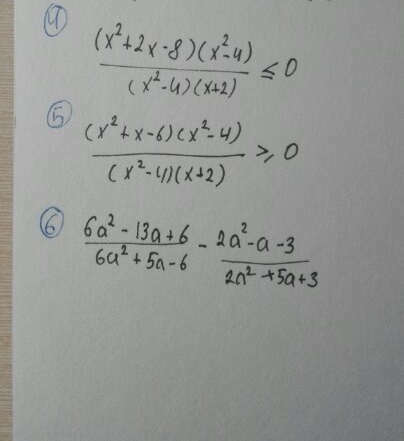 ④
(x²+2x-8)(x²-4)/(x²-4)(x+2) ≤ 0
⑤
(x²+x-6)(x²-4)/(x²-4)(x+2) ≥ 0
⑥ 6a²-13a+6/6a²+5a-6 - 2a²-a-3/2a²+5a+3